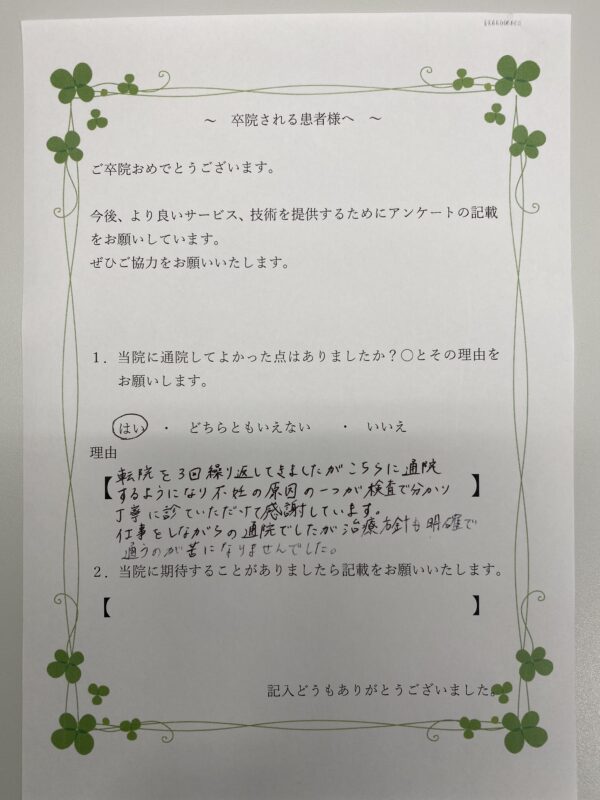 ～ 卒院される患者様へ ～
ご卒院おめでとうございます。
今後、より良いサービス、技術を提供するためにアンケートの記載
をお願いしています。
ぜひご協力をお願いいたします。
１．当院に通院してよかった点はありましたか？〇とその理由を
お願いします。
はい ・ どちらともいえない ・ いいえ
理由
【転院を3回繰り返してきましたがこちらに通院
するようになり不妊の原因の一つが検査で分かり
丁寧に診ていただけて感謝しています。
仕事をしながらの通院でしたが治療方針も明確で
通うのが苦になりませんでした。】
２．当院に期待することがありましたら記載をお願いいたします。
【 】
記入どうもありがとうございました。